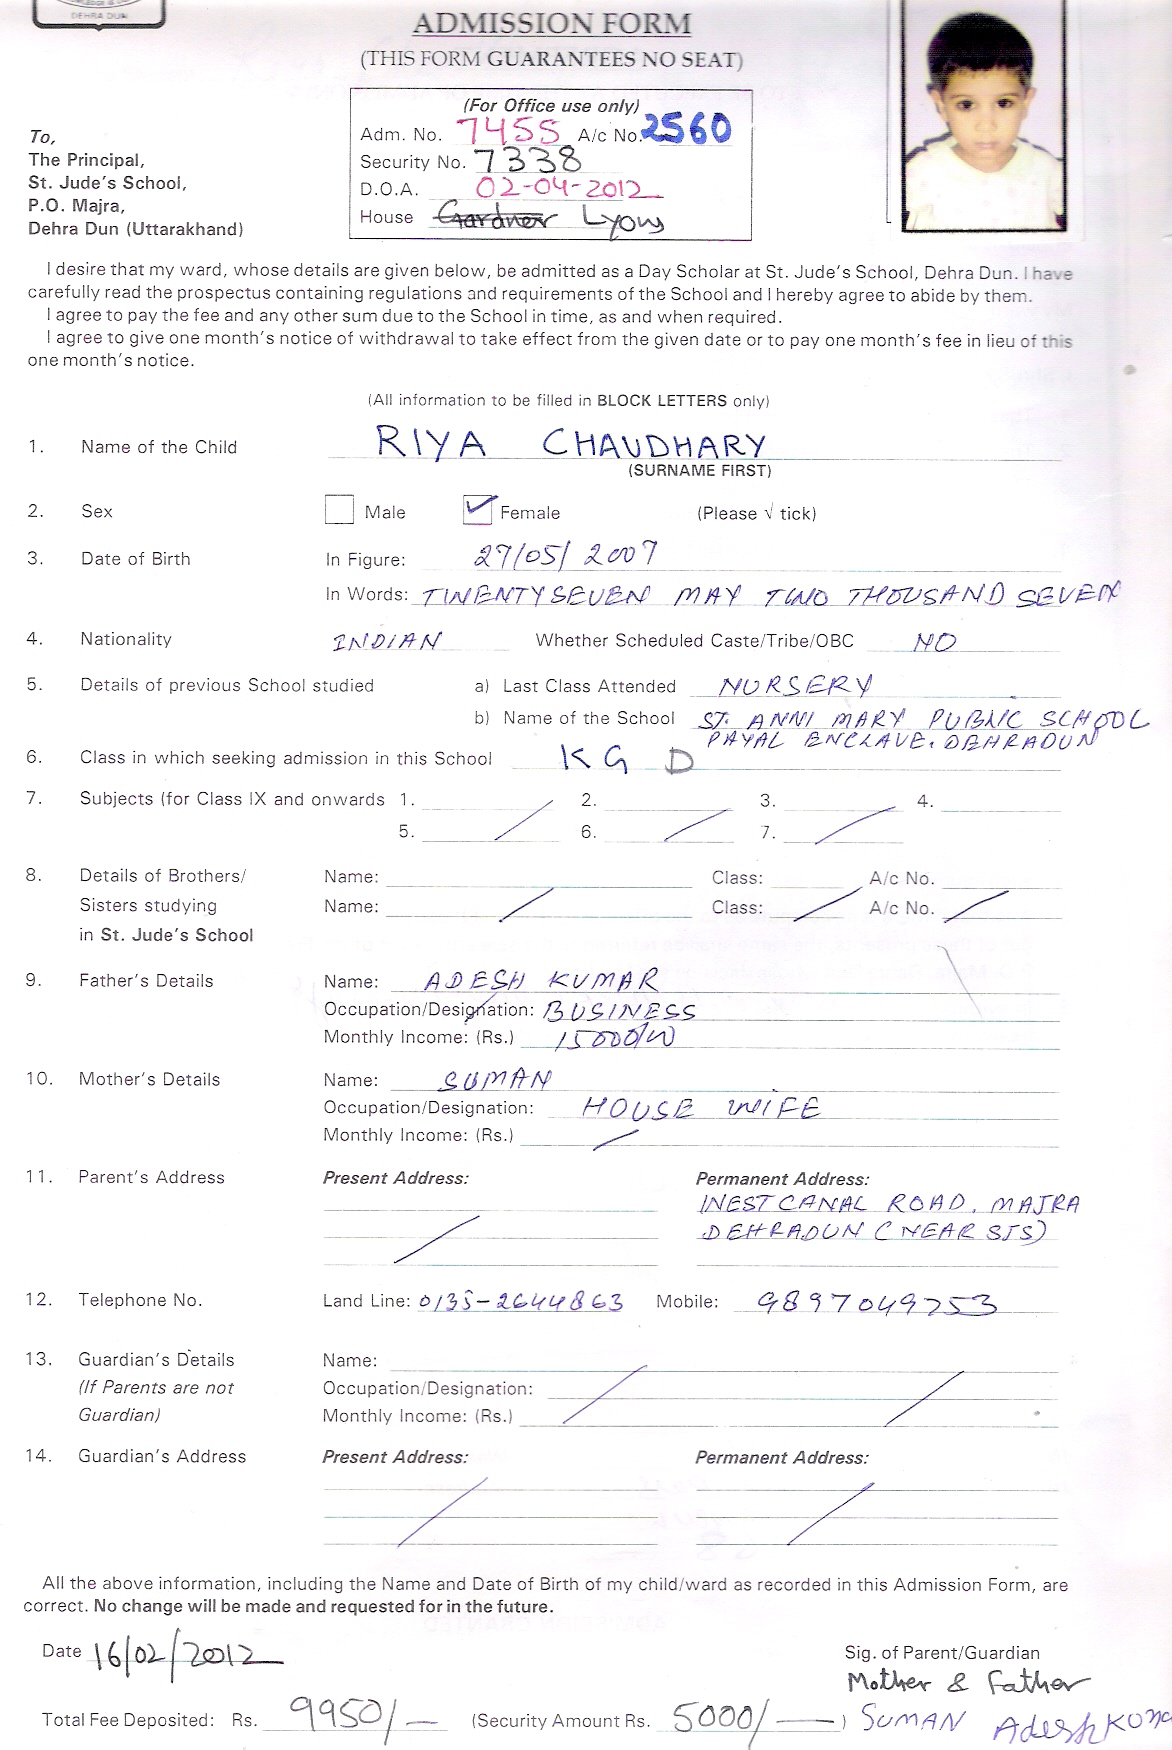 DEHRA DUN
ADMISSION FORM
(THIS FORM GUARANTEES NO SEAT)
(For Office use only)
Adm. No. 7455 A/c No. 2560
Security No. 7338
D.O.A. 02-04-2012
House Gardner Lyons
To,
The Principal,
St. Jude's School,
P.O. Majra,
Dehra Dun (Uttarakhand)
I desire that my ward, whose details are given below, be admitted as a Day Scholar at St. Jude's School, Dehra Dun. I have
carefully read the prospectus containing regulations and requirements of the School and I hereby agree to abide by them.
I agree to pay the fee and any other sum due to the School in time, as and when required.
I agree to give one month's notice of withdrawal to take effect from the given date or to pay one month's fee in lieu of this
one month's notice.
(All information to be filled in BLOCK LETTERS only)
1. Name of the Child RIYA CHAUDHARY
(SURNAME FIRST)
2. Sex Male Female (Please √ tick)
3. Date of Birth In Figure: 27/05/2007
In Words: TWENTY SEVEN MAY TWO THOUSAND SEVEN
4. Nationality INDIAN Whether Scheduled Caste/Tribe/OBC NO
5. Details of previous School studied a) Last Class Attended NURSERY
b) Name of the School ST. ANNI MARY PUBLIC SCHOOL
PAYAL ENCLAVE. DEHRADUN
6. Class in which seeking admission in this School KG D
7. Subjects (for Class IX and onwards 1. 2. 3. 4.
5. 6. 7.
8. Details of Brothers/ Name: Class: A/c No.
Sisters studying Name: Class: A/c No.
in St. Jude's School
9. Father's Details Name: ADESH KUMAR
Occupation/Designation: BUSINESS
Monthly Income: (Rs.)
10. Mother's Details Name: SUMAN
Occupation/Designation: HOUSE WIFE
Monthly Income: (Rs.)
11. Parent's Address Present Address: Permanent Address:
WEST CANAL ROAD, MAJRA
DEHRADUN (NEAR SJS)
12. Telephone No. Land Line: 0135-2644863 Mobile: 9897049753
13. Guardian's Details Name:
(If Parents are not Occupation/Designation:
Guardian) Monthly Income: (Rs.)
14. Guardian's Address Present Address: Permanent Address:
All the above information, including the Name and Date of Birth of my child/ward as recorded in this Admission Form, are
correct. No change will be made and requested for in the future.
Date 16/02/2012 Sig. of Parent/Guardian
Mother & Father
Total Fee Deposited: Rs. 9950/- (Security Amount Rs. 5000/-) SUMAN Adesh